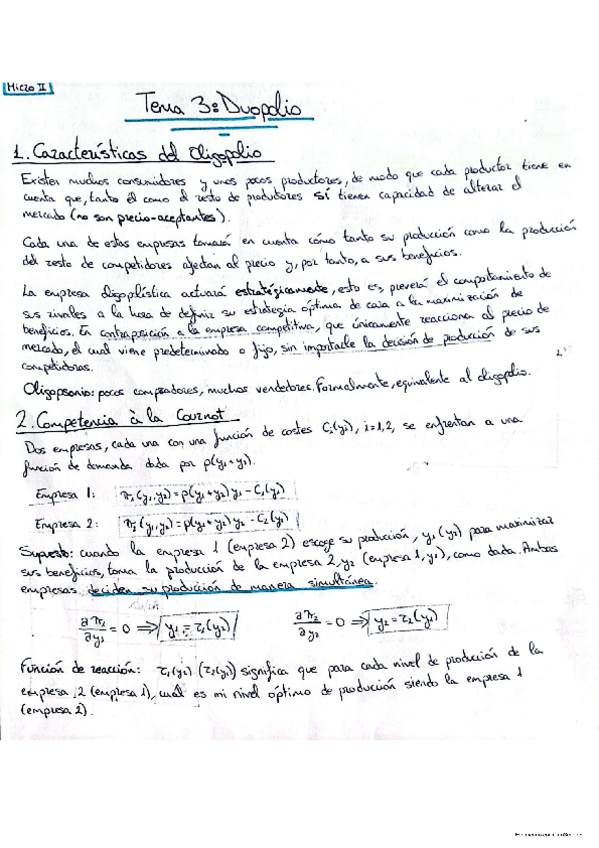 Micro II
Tema 3: Duopolio
1. Características del Oligopolio
Existen muchos consumidores y unos pocos productores, de modo que cada productor tiene en
cuenta que, tanto él como el resto de productores sí tienen capacidad de alterar el
mercado (no son precio-aceptantes).
Cada una de estas empresas tomará en cuenta cómo tanto su producción como la producción
del resto de competidores afectan al precio y, por tanto, a sus beneficios.
La empresa oligopolística actuará estratégicamente, esto es, preverá el comportamiento de
sus rivales a la hora de definir su estrategia óptima de cara a la maximización de
beneficios. En contraposición a la empresa competitiva, que únicamente reacciona al precio de
mercado, el cual viene predeterminado o fijo, sin importarle la decisión de producción de sus
competidores.
Oligopsonio: pocos compradores, muchos vendedores. Formalmente, equivalente al oligopolio.
2. Competencia à la Cournot
Dos empresas, cada una con una función de costes Ci(yi), i=1,2, se enfrentan a una
función de demanda dada por p(y1+y2).
Empresa 1: π1(y1,y2)=p(y1+y2)y1-C1(y1)
Empresa 2: π2(y1,y2)=p(y1+y2)y2-C2(y2)
Supuesto: cuando la empresa 1 (empresa 2) escoge su producción, y1 (y2) para maximizar
sus beneficios, toma la producción de la empresa 2, y2 (empresa 1, y1), como dada. Ambas
empresas deciden su producción de manera simultánea.
∂π1/∂y1 = 0 ⇒ y1 = r1(y2) ∂π2/∂y2 = 0 ⇒ y2 = r2(y1)
Función de reacción: r1(y2) (r2(y1)) significa que para cada nivel de producción de la
empresa 2 (empresa 1), cuál es mi nivel óptimo de producción siendo la empresa 1
(empresa 2).